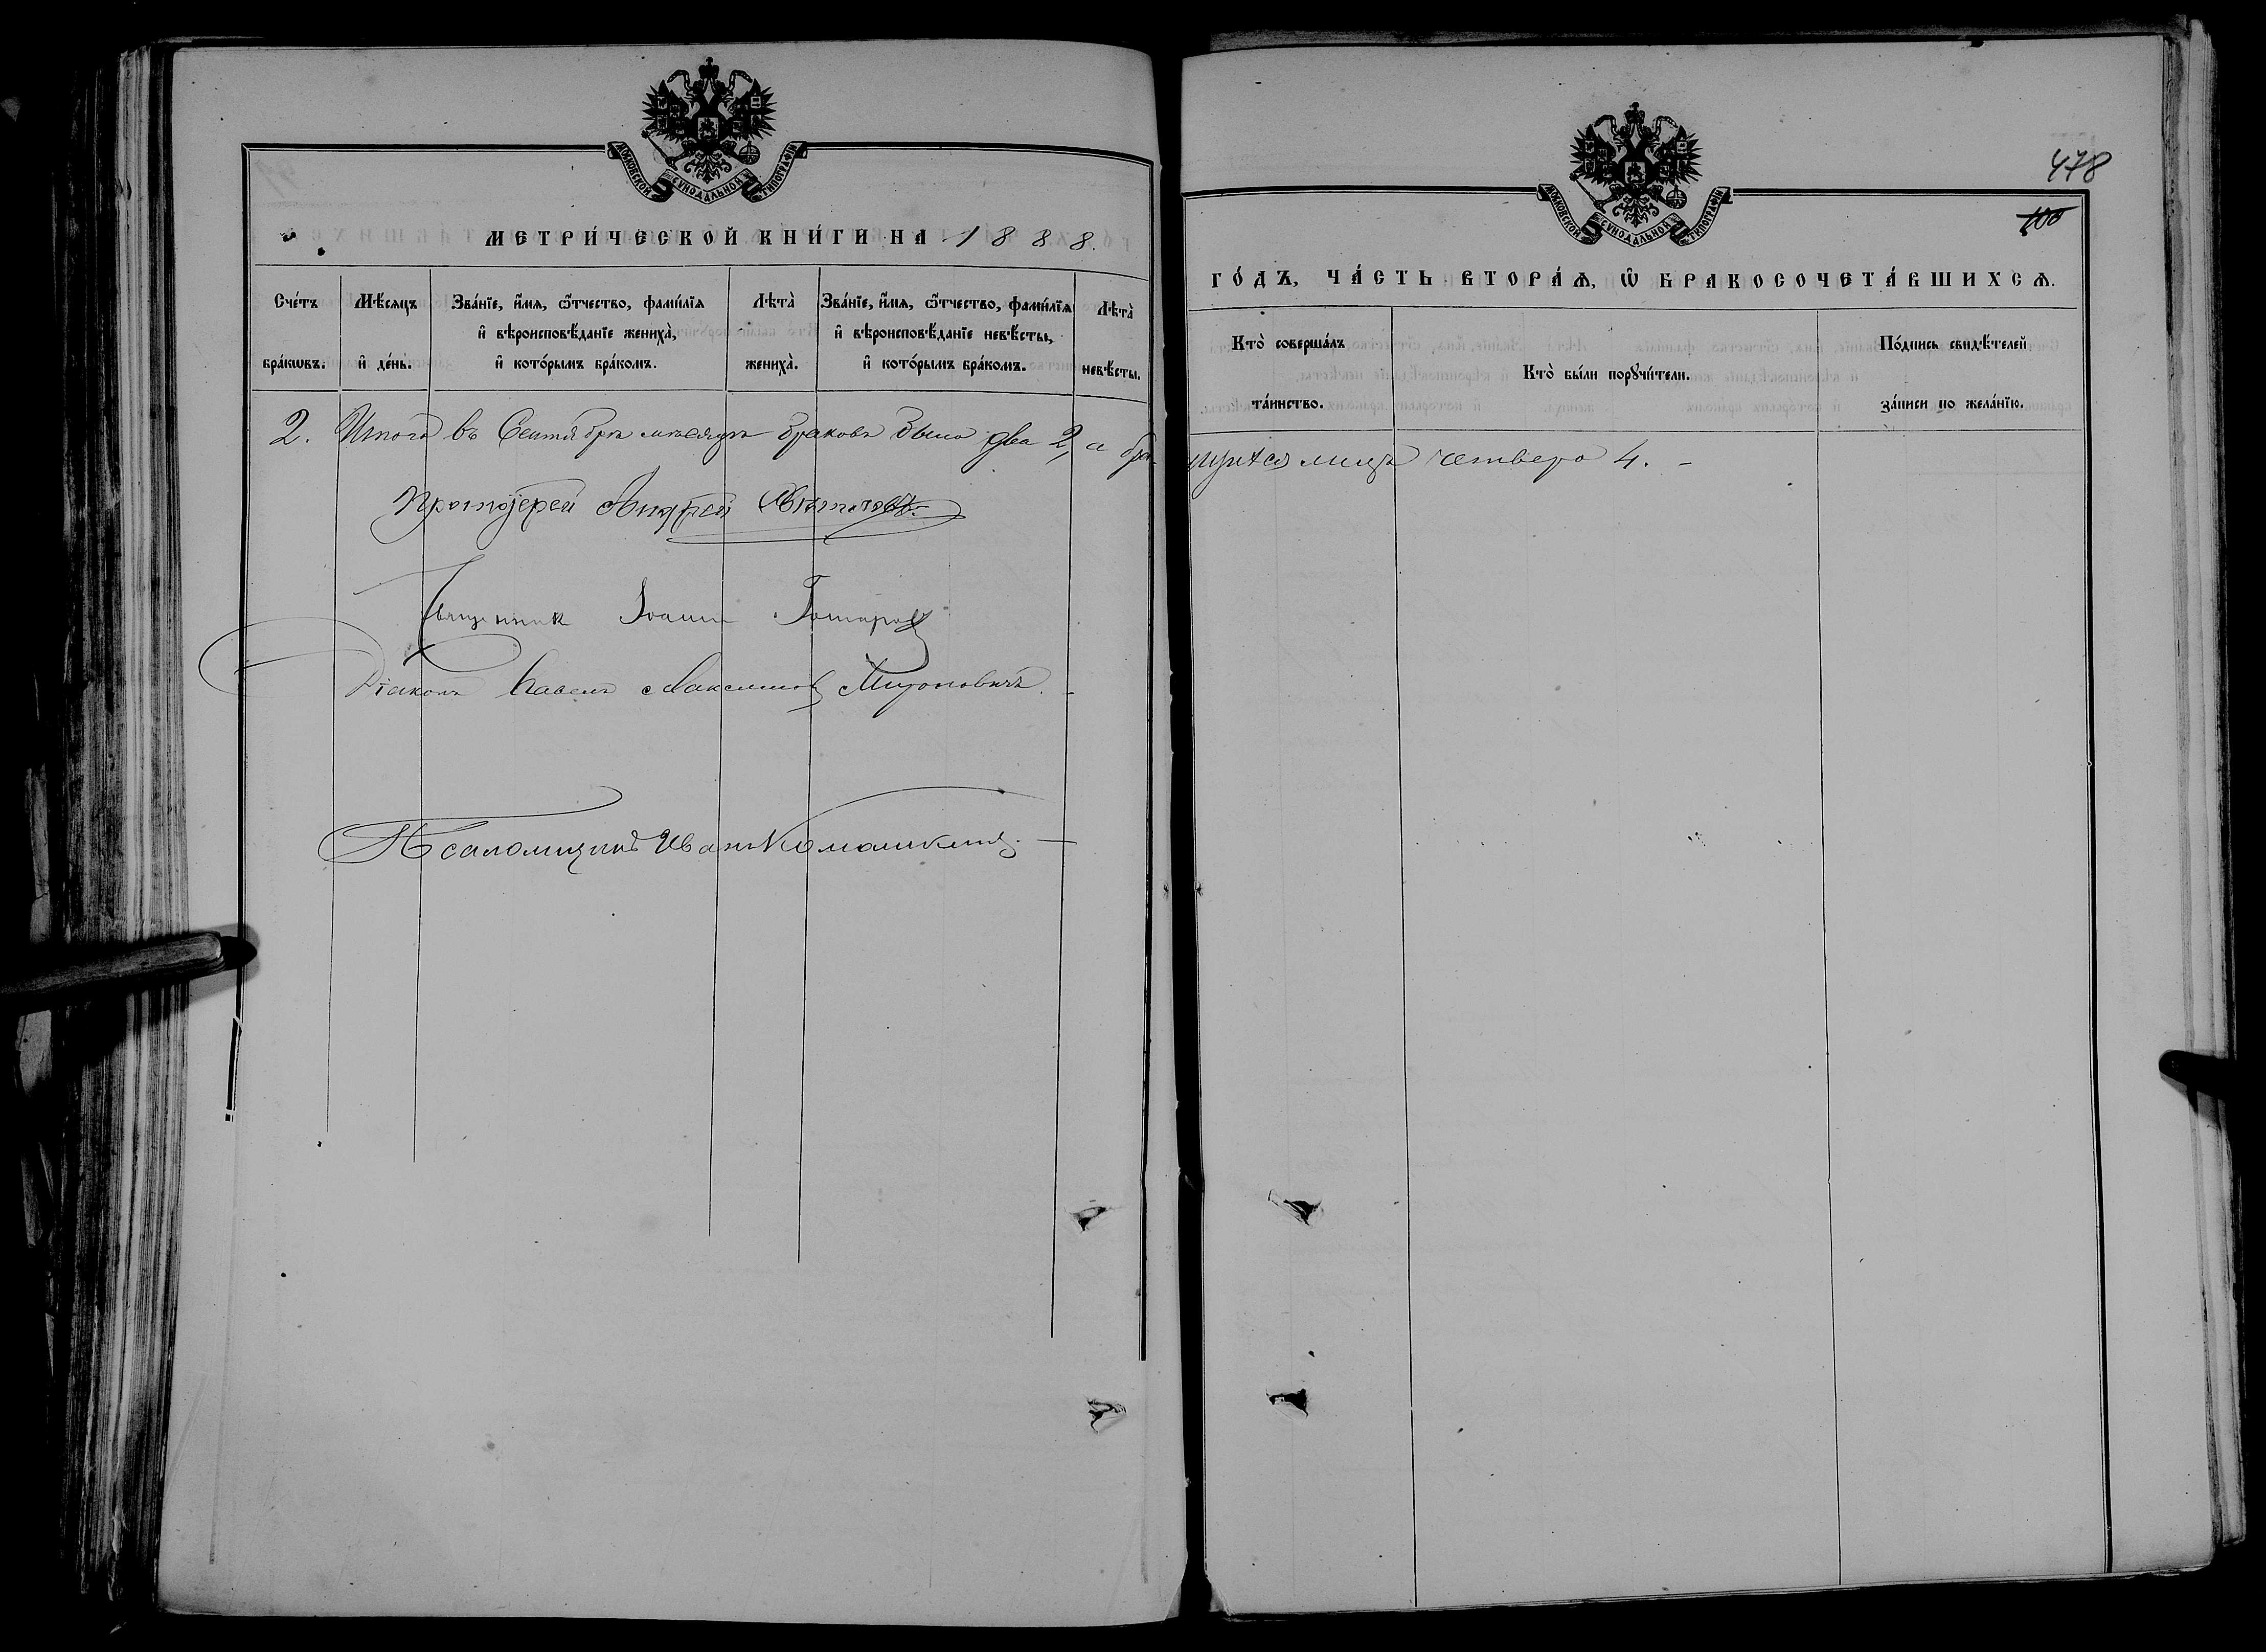 МОСКОВСКОЙ СУНОДАЛЬНОЙ ТИПОГРАФІИ
МЕТРИ́ЧЕСКОЙ КНИ́ГИ НА 1888.
Сче́тъ бра́кѡвъ.
Мѣ́сяцъ и҆ де́нь.
Зва́нїе, и҆́мѧ, ѻ҆́тчество, фами́лїѧ и҆ вѣроисповѣ́данїе жениха̀, и҆ кото́рымъ бра́комъ.
Лѣта̀ жениха̀.
Зва́нїе, и҆́мѧ, ѻ҆́тчество, фами́лїѧ и҆ вѣроисповѣ́данїе невѣ́сты, и҆ кото́рымъ бра́комъ.
Лѣта̀ невѣ́сты.
2. Итого въ Сентябрѣ мѣсяцѣ браковъ было два 2, а бра-
Протоіерей Андрей
Священник Іоанн
Діаконъ Павелъ Максимов Мироновичъ.
Псаломщикъ Иванъ Комашкинъ.
МОСКОВСКОЙ СУНОДАЛЬНОЙ ТИПОГРАФІИ
478
100
ГО́ДЪ, ЧА́СТЬ ВТОРА́Ѧ, Ѡ҆ БРАКОСОЧЕТА́ВШИХСѦ.
Кто̀ соверша́лъ та́инство.
Кто̀ бы́ли порꙋчи́тели.
По́дпись свидѣ́телей за́писи по жела́нїю.
щихся лицъ четверо 4. -